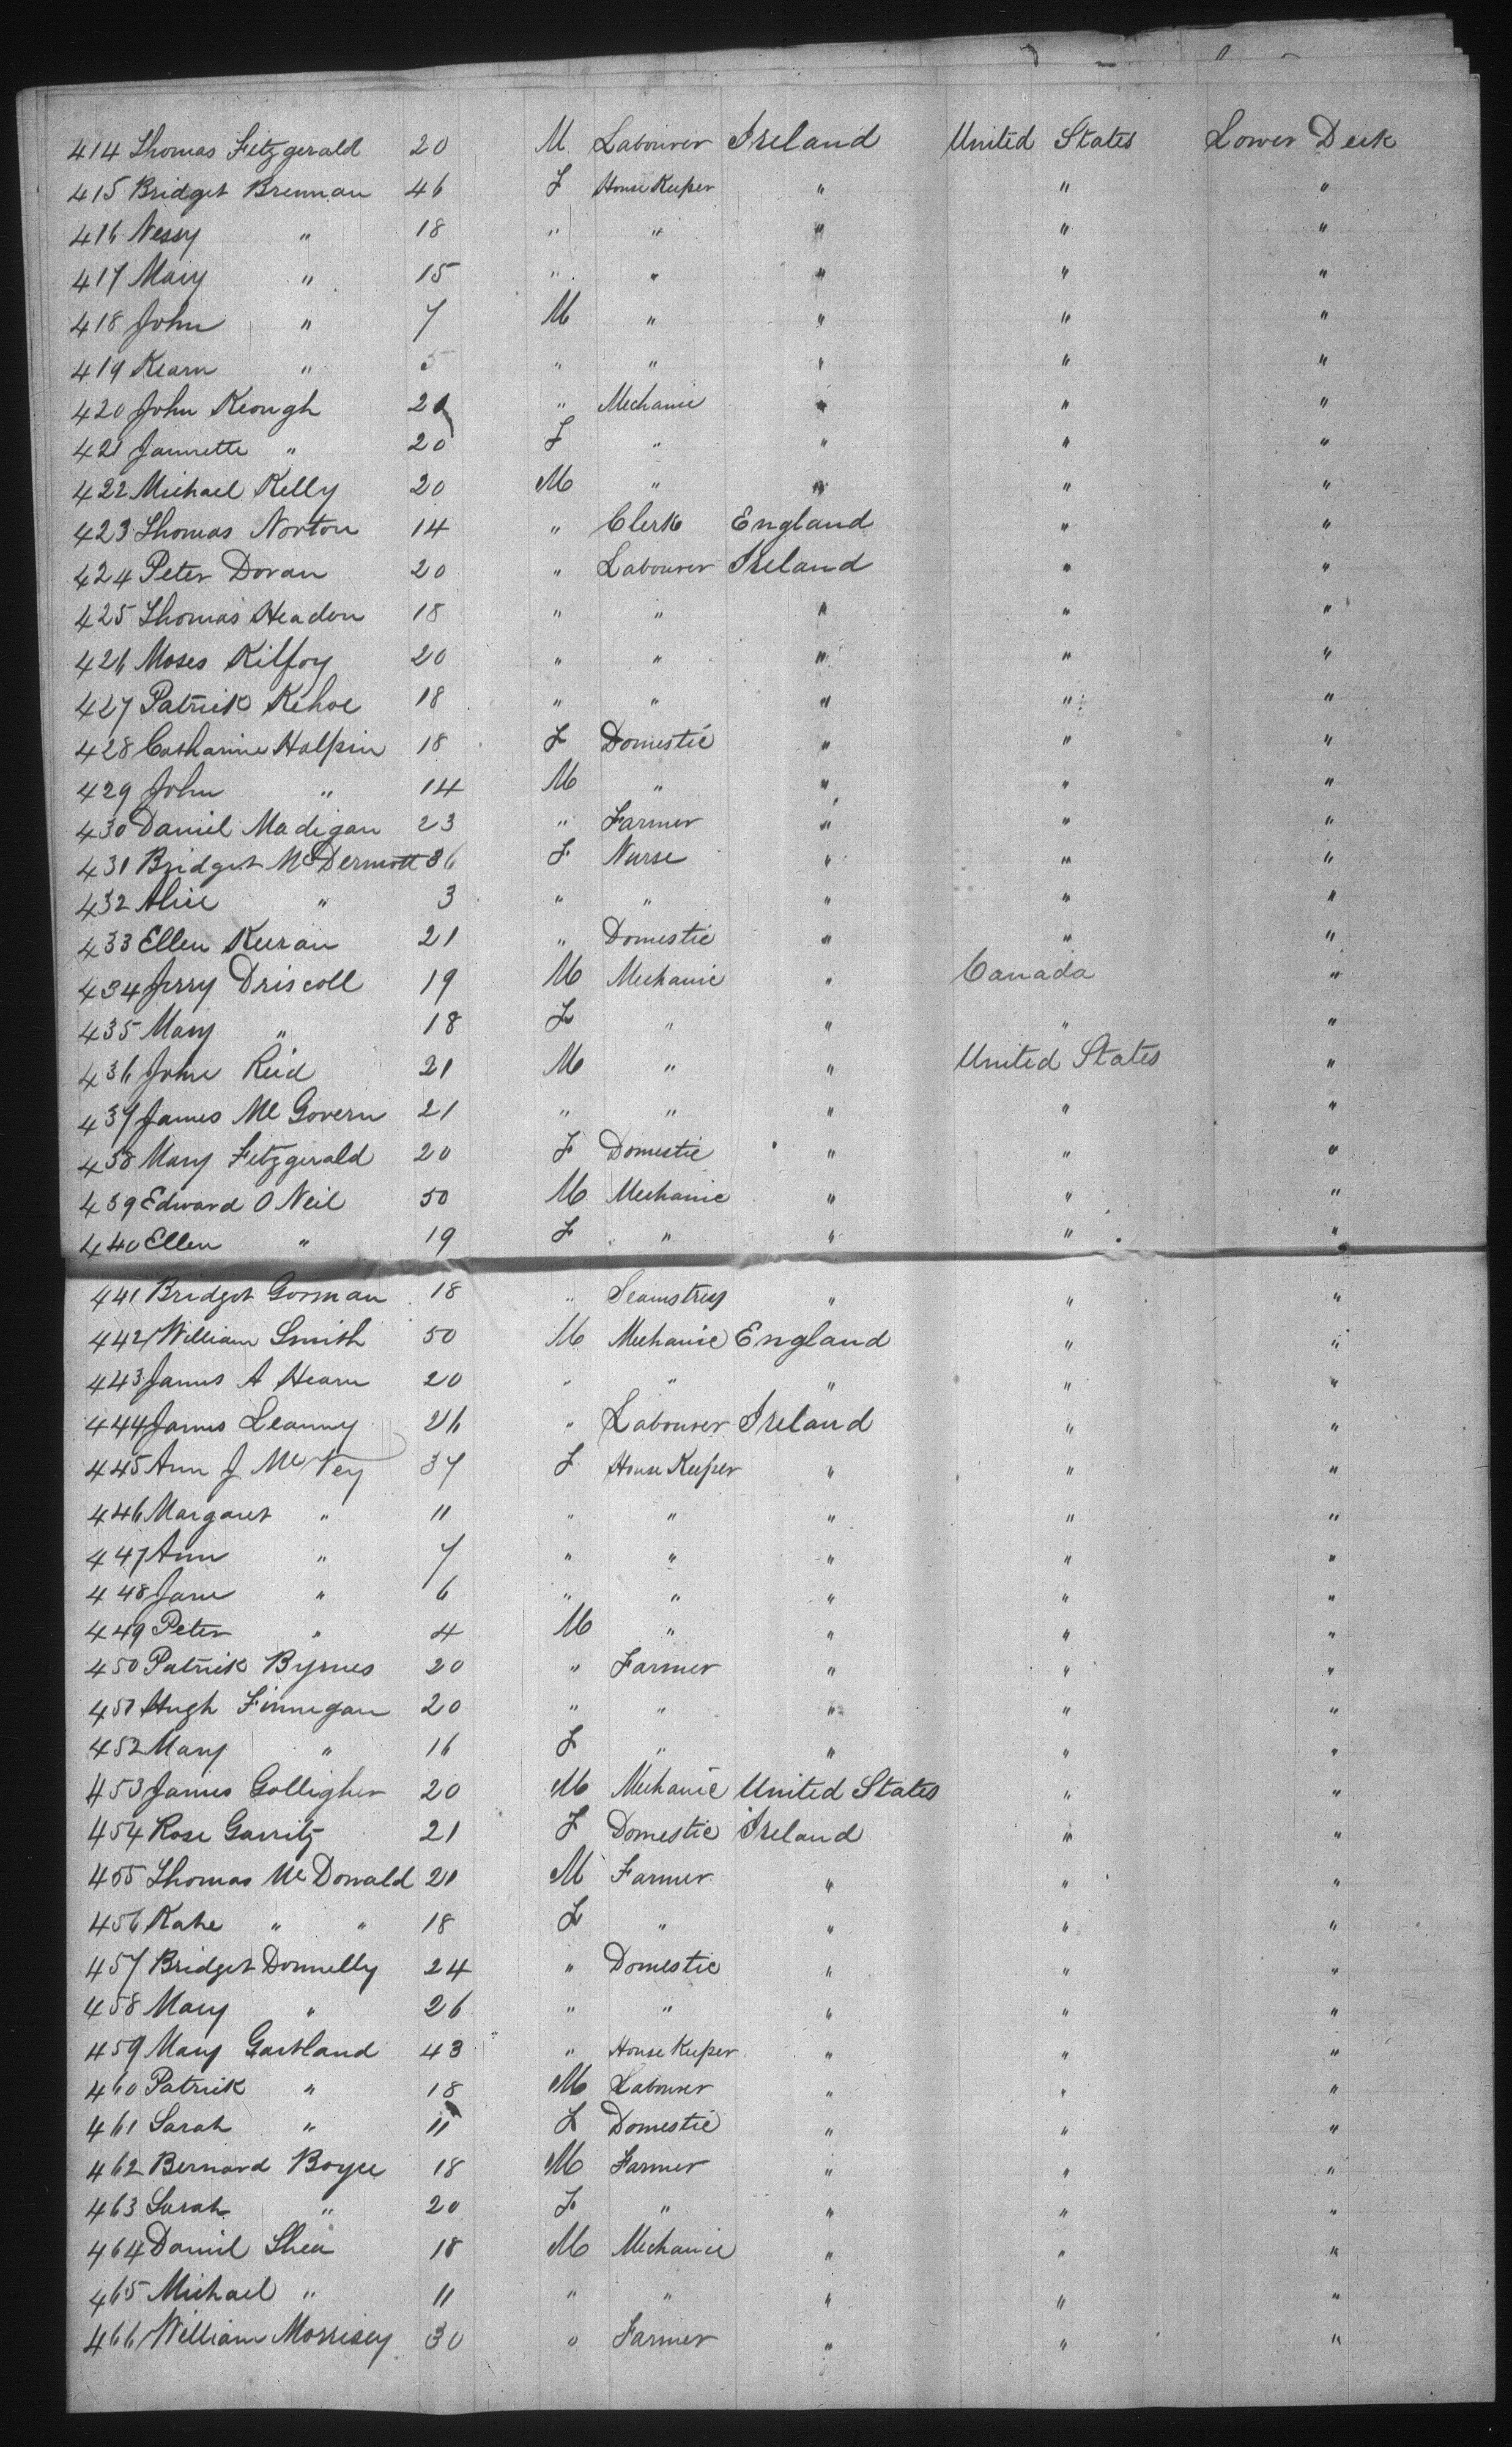 414 Thomas Fitzgerald 20 M Labourer Ireland United States Lower Deck
415 Bridget Brennan 46 F House Keeper " " "
416 Nessy " 18 " " " " "
417 Mary " 15 " " " " "
418 John " 7 M " " " "
419 Kearn " 5 " " " " "
420 John Keough 21 " Mechanic " " "
421 Jannette " 20 F " " " "
422 Michael Kelly 20 M " " " "
423 Thomas Norton 14 " Clerk England " "
424 Peter Doran 20 " Labourer Ireland " "
425 Thomas Headon 18 " " " " "
426 Moses Kilfoy 20 " " " " "
427 Patrick Kehoe 18 " " " " "
428 Catharine Halpin 18 F Domestic " " "
429 John " 14 M " " " "
430 Daniel Madigan 23 " Farmer " " "
431 Bridget McDermott 36 F Nurse " " "
432 Alice " 3 " " " " "
433 Ellen Keeran 21 " Domestic " " "
434 Jerry Driscoll 19 M Mechanic " Canada "
435 Mary " 18 F " " " "
436 John Reid 21 M " " United States "
437 James McGovern 21 " " " " "
438 Mary Fitzgerald 20 F Domestic " " "
439 Edward O Neil 50 M Mechanic " " "
440 Ellen " 19 F " " " "
441 Bridget Gorman 18 " Seamstress " " "
442 William Smith 50 M Mechanic England " "
443 James A Hearn 20 " " " " "
444 James Leanny 26 " Labourer Ireland " "
445 Ann J McVey 37 F House Keeper " " "
446 Margaret " 11 " " " " "
447 Ann " 7 " " " " "
448 Jane " 6 " " " " "
449 Peter " 4 M " " " "
450 Patrick Byrnes 20 " Farmer " " "
451 Hugh Finnegan 20 " " " " "
452 Mary " 16 F " " " "
453 James Golligher 20 M Mechanic United States " "
454 Rose Garrity 21 F Domestic Ireland " "
455 Thomas McDonald 21 M Farmer " " "
456 Kate " " 18 F " " " "
457 Bridget Donnelly 24 " Domestic " " "
458 Mary " 26 " " " " "
459 Mary Gartland 43 " House Keeper " " "
460 Patrick " 18 M Labourer " " "
461 Sarah " 11 F Domestic " " "
462 Bernard Boyce 18 M Farmer " " "
463 Sarah " 20 F " " " "
464 Daniel Shea 18 M Mechanic " " "
465 Michael " 11 " " " " "
466 William Morrisey 30 " Farmer " " "